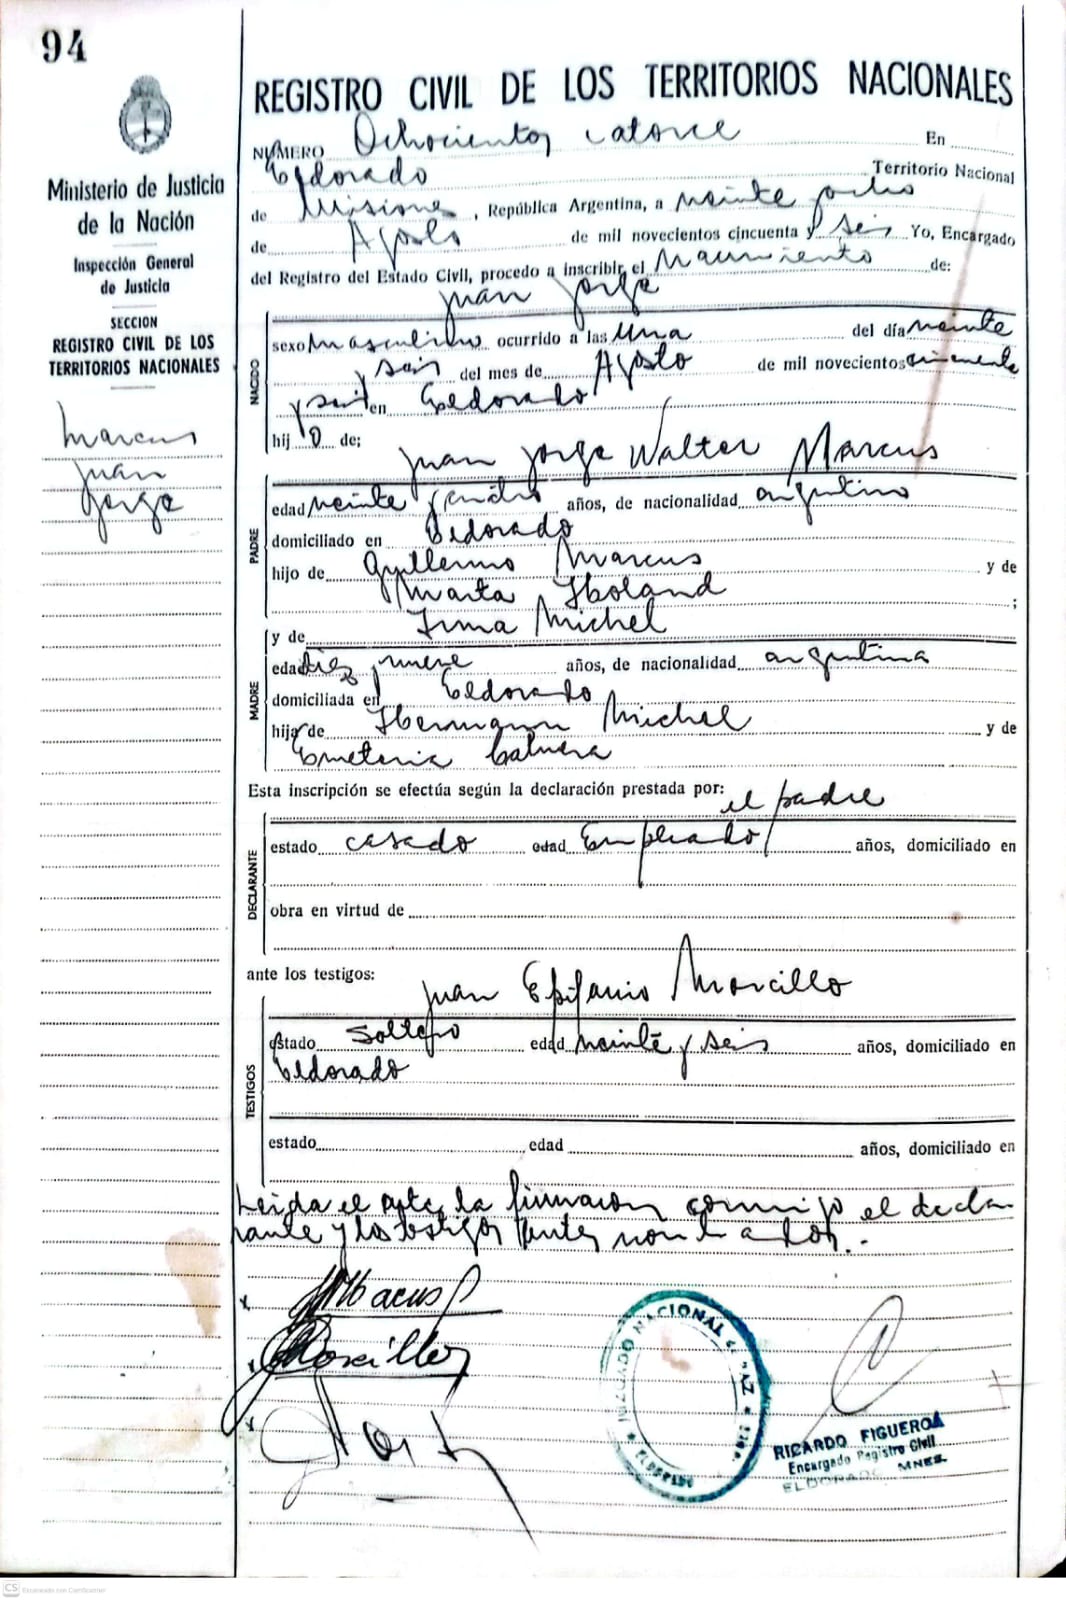 94
Ministerio de Justicia
de la Nación
Inspección General
de Justicia
SECCION
REGISTRO CIVIL DE LOS
TERRITORIOS NACIONALES
Marcus
Juan
Jorge
REGISTRO CIVIL DE LOS TERRITORIOS NACIONALES
NUMERO Ochocientos catorce En
Eldorado Territorio Nacional
de Misiones, República Argentina, a veinte ocho
de Agosto de mil novecientos cincuenta y seis Yo, Encargado
del Registro del Estado Civil, procedo a inscribir el Nacimiento de:
Juan Jorge
NACIDO
sexo masculino ocurrido a las una del día veinte
y seis del mes de Agosto de mil novecientos cincuenta
y seis en Eldorado
hijo de;
Juan Jorge Walter Marcus
PADRE
edad veinte y años, de nacionalidad argentino
domiciliado en Eldorado
hijo de Guillermo Marcus y de
Marta Holand ;
y de Irma Michel
MADRE
edad diez y nueve años, de nacionalidad argentina
domiciliada en Eldorado
hija de Hermann Michel y de
Emeteria Cabrera
Esta inscripción se efectúa según la declaración prestada por: el padre
DECLARANTE
estado casado edad Empleado años, domiciliado en
obra en virtud de
ante los testigos:
Juan Epifanio Morcillo
TESTIGOS
estado soltero edad veinte y seis años, domiciliado en
Eldorado
estado edad años, domiciliado en
Leida el acta, la firmaron conmigo el decla
rante y los testigos antes nombrados.-
JUZGADO NACIONAL de PAZ ELDORADO
RICARDO FIGUEROA
Encargado Registro Civil
ELDORADO MNES.
CS Escaneado con CamScanner